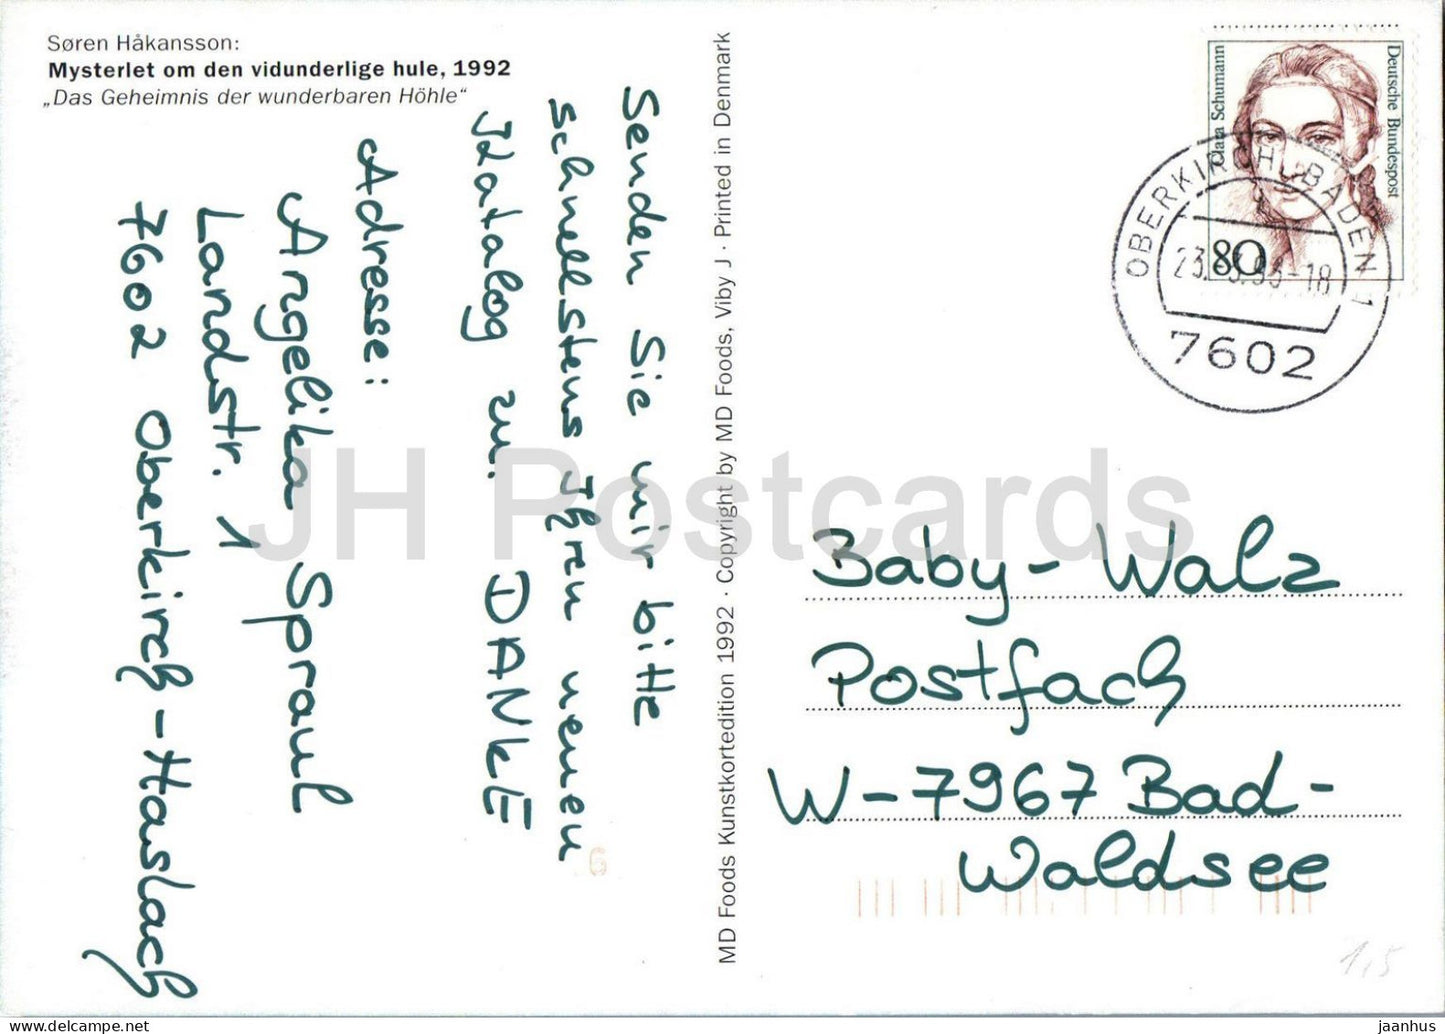 Søren Håkansson:
Mysterlet om den vidunderlige hule, 1992
„Das Geheimnis der wunderbaren Höhle“
Senden Sie mir bitte
schnellstens Ihren neuen
Katalog zu. DANKE
Adresse:
Angelika Spraul
Landstr. 1
7602 Oberkirch-Haslach
MD Foods Kunstkortedition 1992 · Copyright by MD Foods, Viby J · Printed in Denmark
Clara Schumann
Deutsche Bundespost
80
OBERKIRCH, BADEN 1
23.-3.93-18
7602
Baby-Walz
Postfach
W-7967 Bad-
Waldsee
6
1,5
JH Postcards
www.delcampe.net
jaanhus